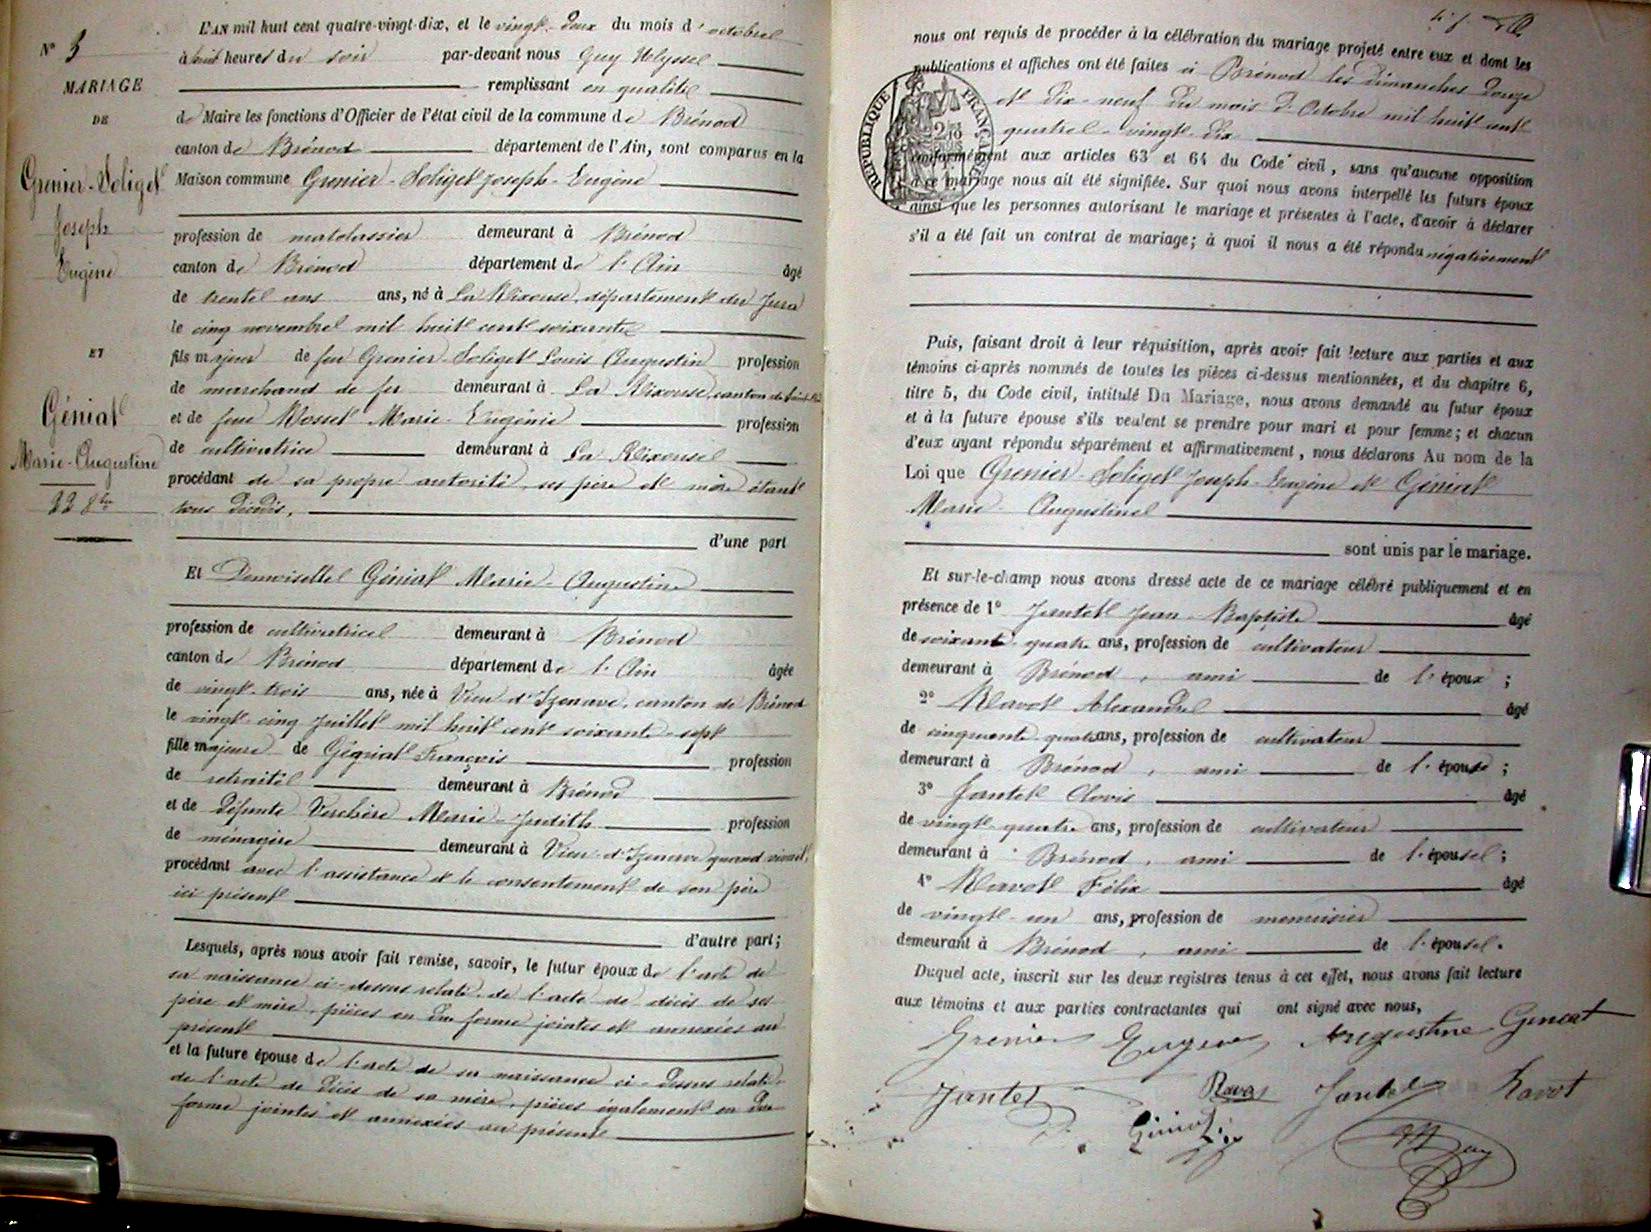 N° 5
MARIAGE
DE
Grenier-Soliget
Joseph
Eugène
ET
Géniat
Marie-Augustine
22 8bre
L'AN mil huit cent quatre-vingt-dix, et le vingt-deux du mois d'octobre
à huit heures du soir par-devant nous Guy Ulysse
remplissant en qualité
de Maire les fonctions d'Officier de l'état civil de la commune de Brénod
canton de Brénod département de l'Ain, sont comparus en la
Maison commune Grenier-Soliget Joseph-Eugène
profession de matelassier demeurant à Brénod
canton de Brénod département de l'Ain âgé
de trente ans ans, né à La Rixouse, département du Jura
le cinq novembre mil huit cent soixante
fils majeur de feu Grenier-Soliget Louis Augustin profession
de marchand de fer demeurant à La Rixouse, canton de
et de feue Mosset Marie-Eugénie profession
de cultivatrice demeurant à La Rixouse
procédant de sa propre autorité, ses père et mère étant
tous décédés,
d'une part
Et Demoiselle Géniat Marie-Augustine
profession de cultivatrice demeurant à Brénod
canton de Brénod département de l'Ain âgée
de vingt-trois ans, née à Vieu d'Izenave, canton de Brénod
le vingt-cinq Juillet mil huit cent soixante-sept
fille majeure de Géniat François profession
de retraité demeurant à Brénod
et de défunte Verchère Marie-Judith profession
de ménagère demeurant à Vieu-d'Izenave quand vivait,
procédant avec l'assistance et le consentement de son père
ici présent
d'autre part;
Lesquels, après nous avoir fait remise, savoir, le futur époux de l'acte de
sa naissance ci-dessus relaté, de l'acte de décès de ses
père et mère, pièces en due forme jointes et annexées au
présent
et la future épouse de l'acte de sa naissance ci-dessus relaté
de l'acte de décès de sa mère, pièces également en due
forme jointes et annexées au présent
nous ont requis de procéder à la célébration du mariage projeté entre eux et dont les
publications et affiches ont été faites à Brénod les dimanches douze
et dix-neuf du mois d'Octobre mil huit cent
quatre-vingt-dix
RÉPUBLIQUE FRANÇAISE
conformément aux articles 63 et 64 du Code civil, sans qu'aucune opposition
à ce mariage nous ait été signifiée. Sur quoi nous avons interpellé les futurs époux
ainsi que les personnes autorisant le mariage et présentes à l'acte, d'avoir à déclarer
s'il a été fait un contrat de mariage; à quoi il nous a été répondu négativement
Puis, faisant droit à leur réquisition, après avoir fait lecture aux parties et aux
témoins ci-après nommés de toutes les pièces ci-dessus mentionnées, et du chapitre 6,
titre 5, du Code civil, intitulé Du Mariage, nous avons demandé au futur époux
et à la future épouse s'ils veulent se prendre pour mari et pour femme; et chacun
d'eux ayant répondu séparément et affirmativement, nous déclarons Au nom de la
Loi que Grenier-Soliget Joseph-Eugène et Géniat
Marie-Augustine
sont unis par le mariage.
Et sur-le-champ nous avons dressé acte de ce mariage célébré publiquement et en
présence de 1° Jantet Jean-Baptiste âgé
de soixante-quatre ans, profession de cultivateur
demeurant à Brénod, ami de l'époux;
2° Ravot Alexandre âgé
de cinquante-quatre ans, profession de cultivateur
demeurant à Brénod, ami de l'épouse;
3° Jantet Clovis âgé
de vingt-quatre ans, profession de cultivateur
demeurant à Brénod, ami de l'épouse;
4° Ravot Félix âgé
de vingt-un ans, profession de menuisier
demeurant à Brénod, ami de l'épouse.
Duquel acte, inscrit sur les deux registres tenus à cet effet, nous avons fait lecture
aux témoins et aux parties contractantes qui ont signé avec nous,
Grenier Eugène Augustine Geniat
Jantet Ravot Jantet Ravot
Géniat Guy